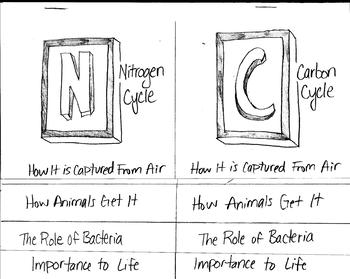 N
Nitrogen
Cycle
How It is Captured From Air
How Animals Get It
The Role of Bacteria
Importance to Life
C
Carbon
Cycle
How It is Captured From Air
How Animals Get It
The Role of Bacteria
Importance to Life